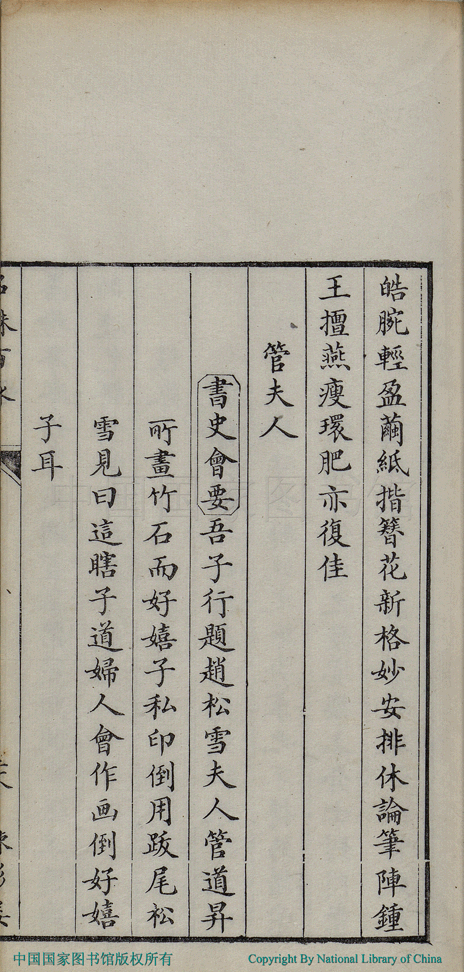 皓腕輕盈繭紙揩簪花新格妙安排休論筆陣鍾
王擅燕瘦環肥亦復佳
管夫人
書史會要吾子行題趙松雪夫人管道昇
所畫竹石而好嬉子私印倒用跋尾松
雪見曰這瞎子道婦人會作画倒好嬉
子耳
中国国家图书馆版权所有
Copyright By National Library of China